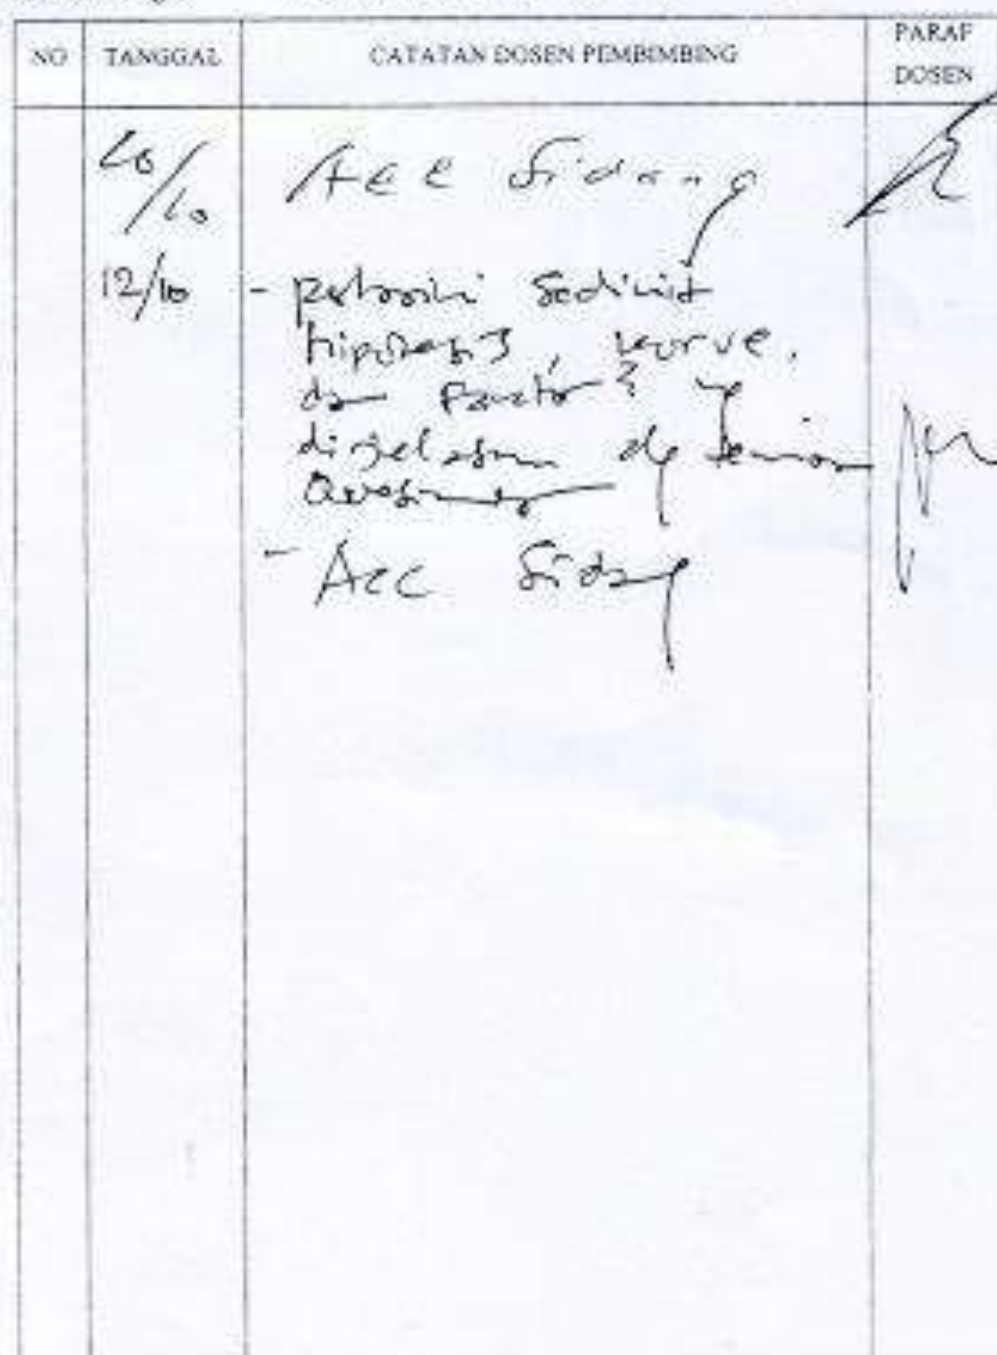 NO TANGGAL CATATAN DOSEN PEMBIMBING PARAF DOSEN
10/10 Acc Sidang
12/10 - perbaiki sedikit
hipotesis, kurve,
da faktor² yg
dijelaskan dg
- Acc Sidang